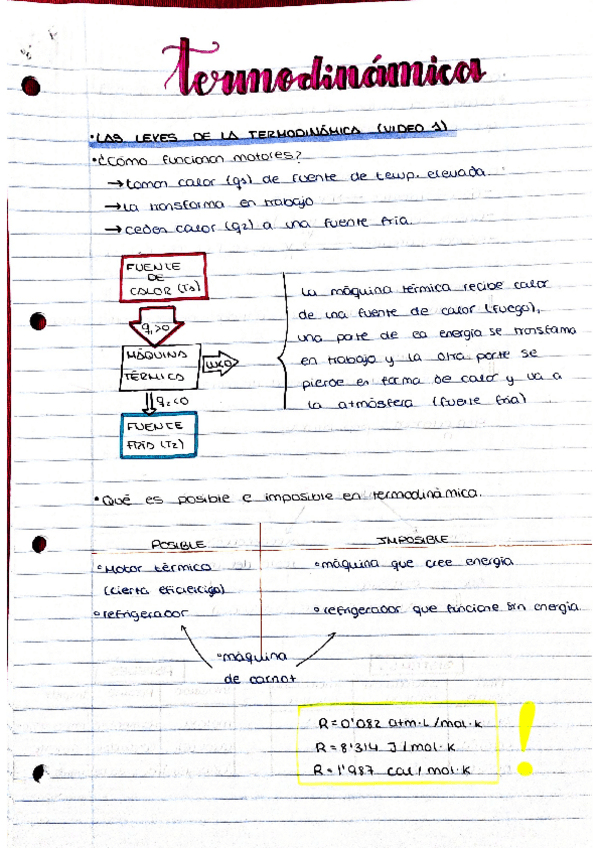 Termodinámica
• LAS LEYES DE LA TERMODINÁMICA (VIDEO 1)
• ¿Cómo funcionan motores?
→ toman calor (q1) de fuente de temp. elevada.
→ La transforma en trabajo
→ ceden calor (q2) a una fuente fría.
FUENTE
DE
CALOR (T1)
q1>0
MÁQUINA
TÉRMICA
W<0
q2<0
FUENTE
FRÍA (T2)
La máquina térmica recibe calor
de una fuente de calor (fuego),
una parte de ea energía se transfoma
en trabajo y la otra parte se
pierde en forma de calor y va a
la atmósfera (fuente fría)
• Qué es posible e imposible en termodinámica.
POSIBLE
IMPOSIBLE
• Motor térmico
(cierta eficiencia)
• refrigerador
• máquina que cree energía
• refrigerador que funcione sin energía
• máquina
de carnot
R = 0'082 atm·L/mol·k
R = 8'314 J/mol·k
R = 1'987 cal/mol·k
!